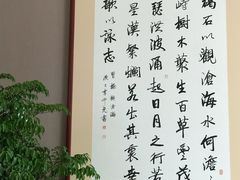 碣石以觀滄海水何澹
峙樹木叢生百草豐茂
瑟洪波涌起日月之行若
星漢粲爛若出其裏幸甚
歌以詠志